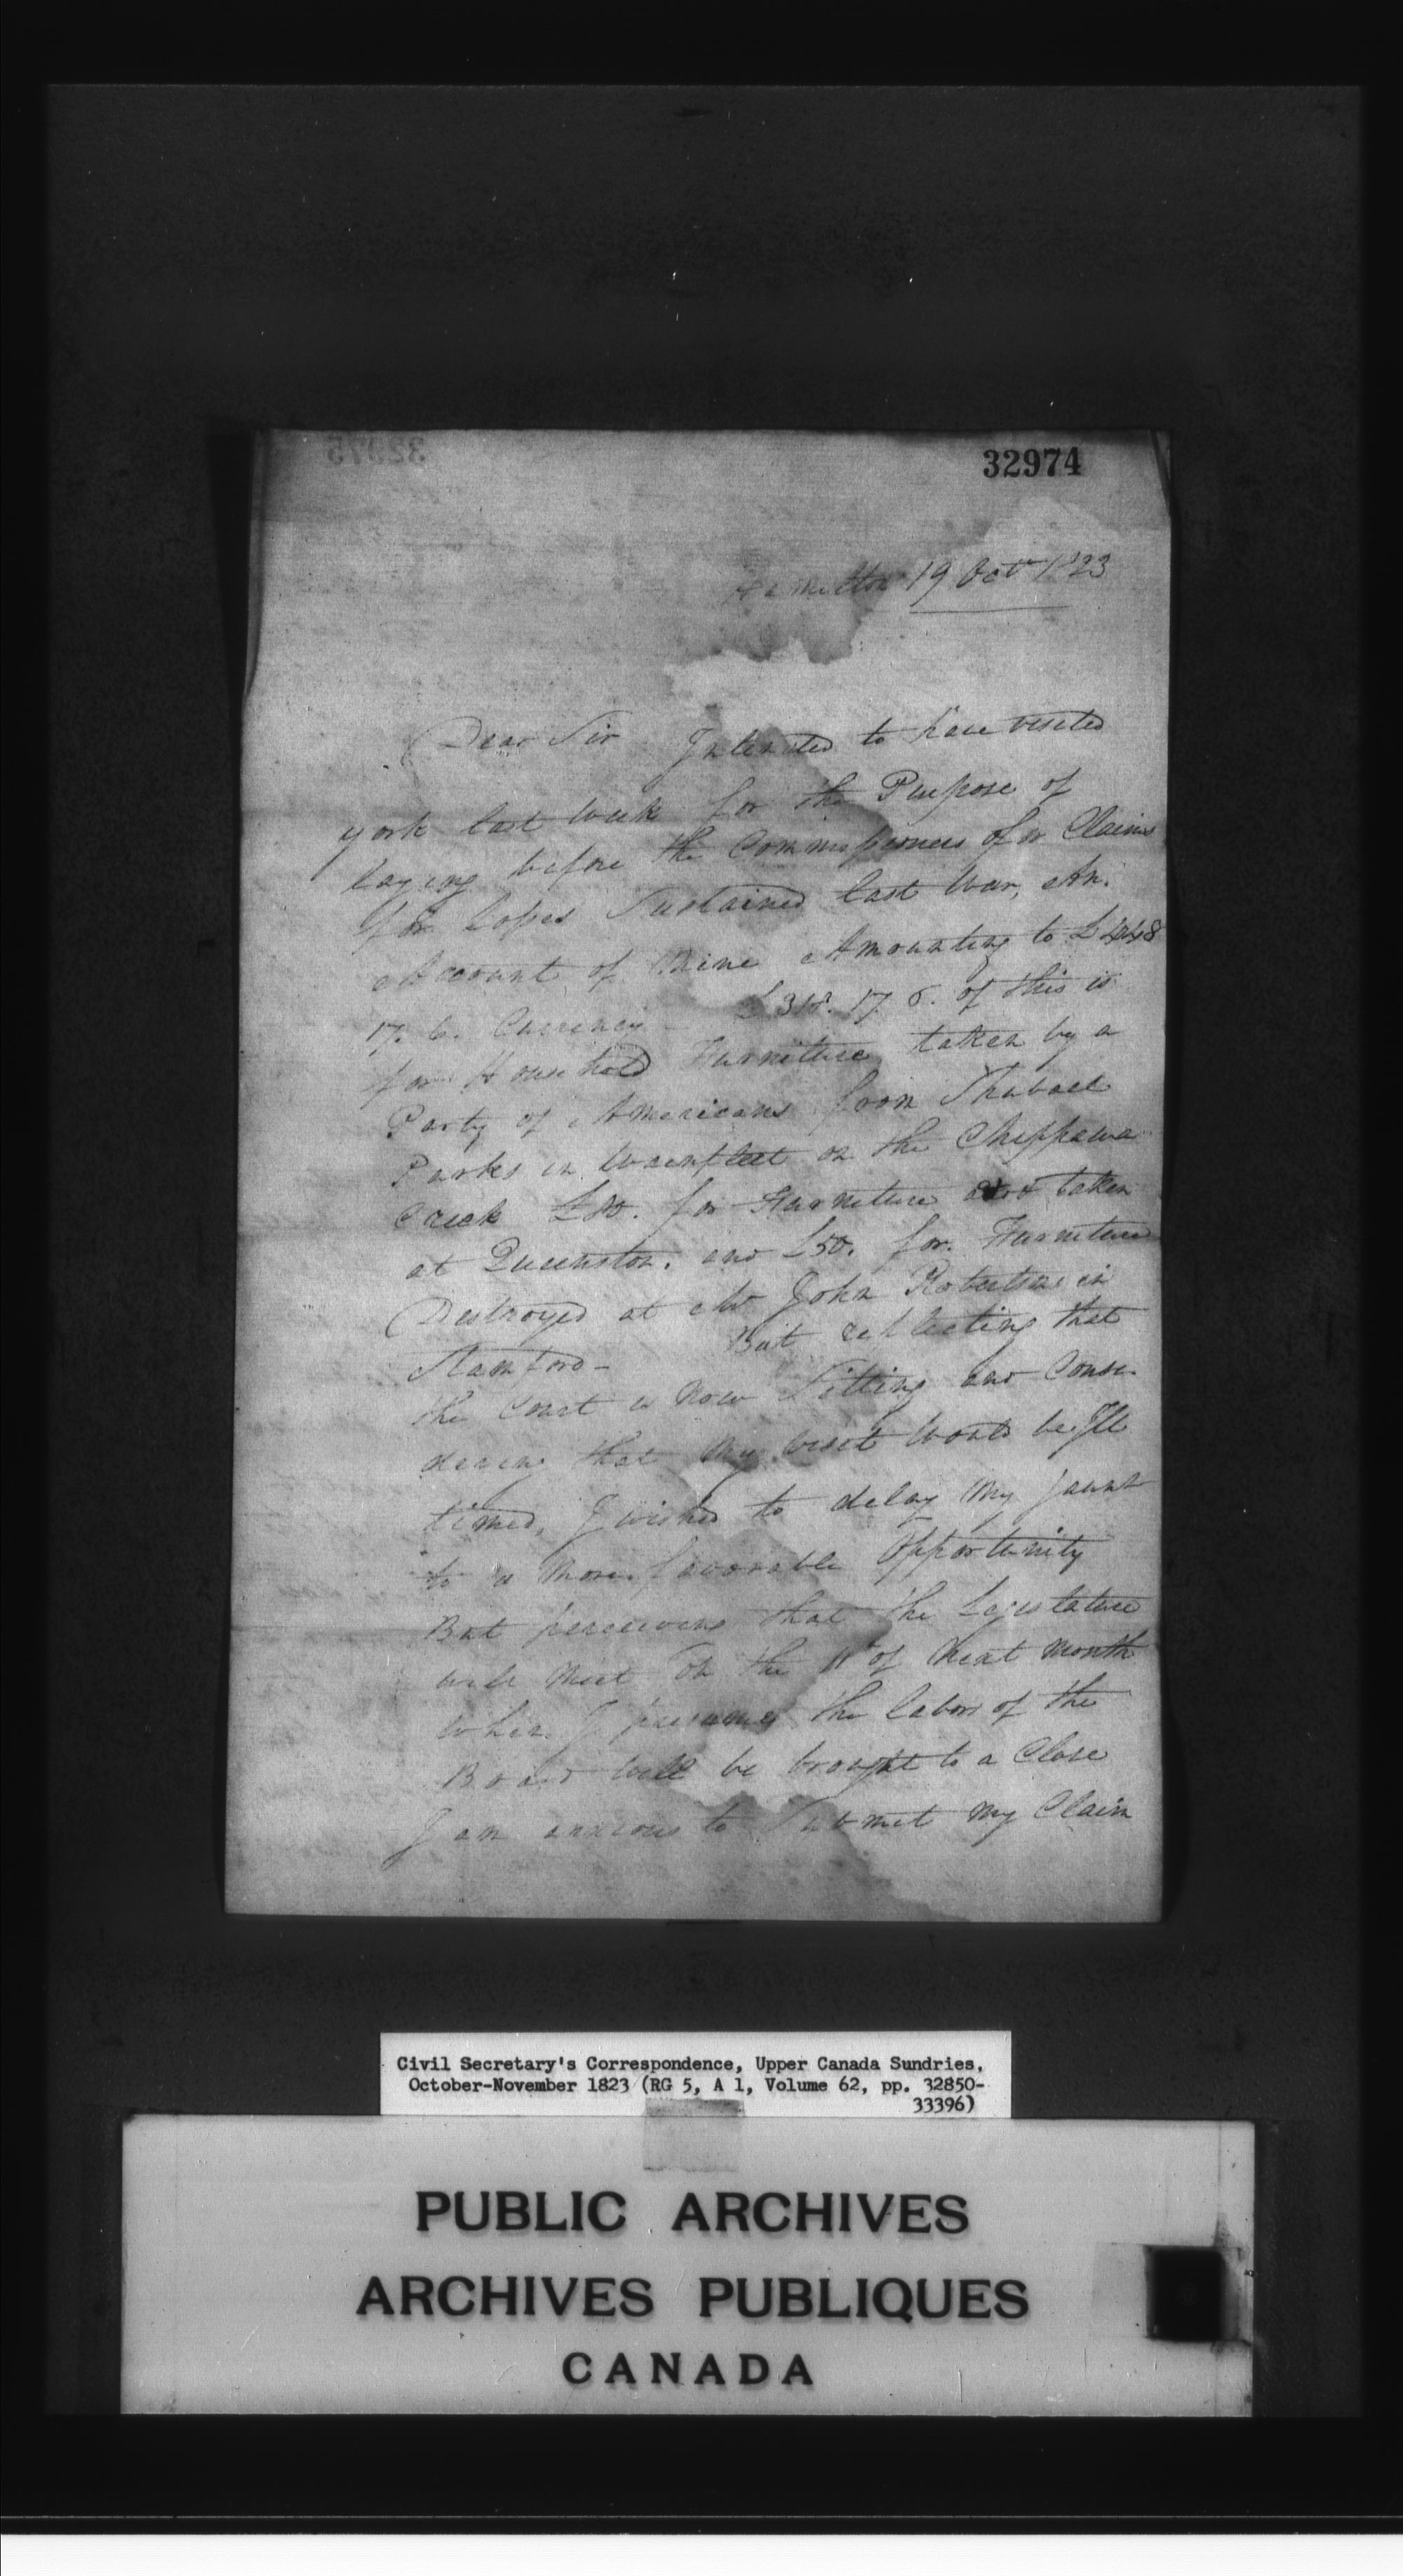 32974
Hamilton 19 Octr 1823
Dear Sir I Intended to have visited
York last week for the Purpose of
laying before the Commissioners of Claims
for Losses Sustained last War, An
Account of Mine Amounting to £448
17. 6. Currency - £318. 17. 6. of this is
for Household Furniture taken by a
Party of Americans from Shubael
Parks in Wainfleet on the Chippawa
Creek £80. for Furniture taken
at Queenston. and £50. for Furniture
Destroyed at Mr John Robertsons in
Stamford - But reflecting that
the Court is Now Sitting and Consi-
dering that My visit would be Ill
timed, I wished to delay My Jaunt
to a More favorable Opportunity
But perceiving that the Legislature
will Meet on the 11th of Next Month
When I presume the labors of the
Board will be brought to a Close
I am anxious to Submit My Claim
Civil Secretary's Correspondence, Upper Canada Sundries,
October-November 1823 (RG 5, A 1, Volume 62, pp. 32850-
33396)
PUBLIC ARCHIVES
ARCHIVES PUBLIQUES
CANADA